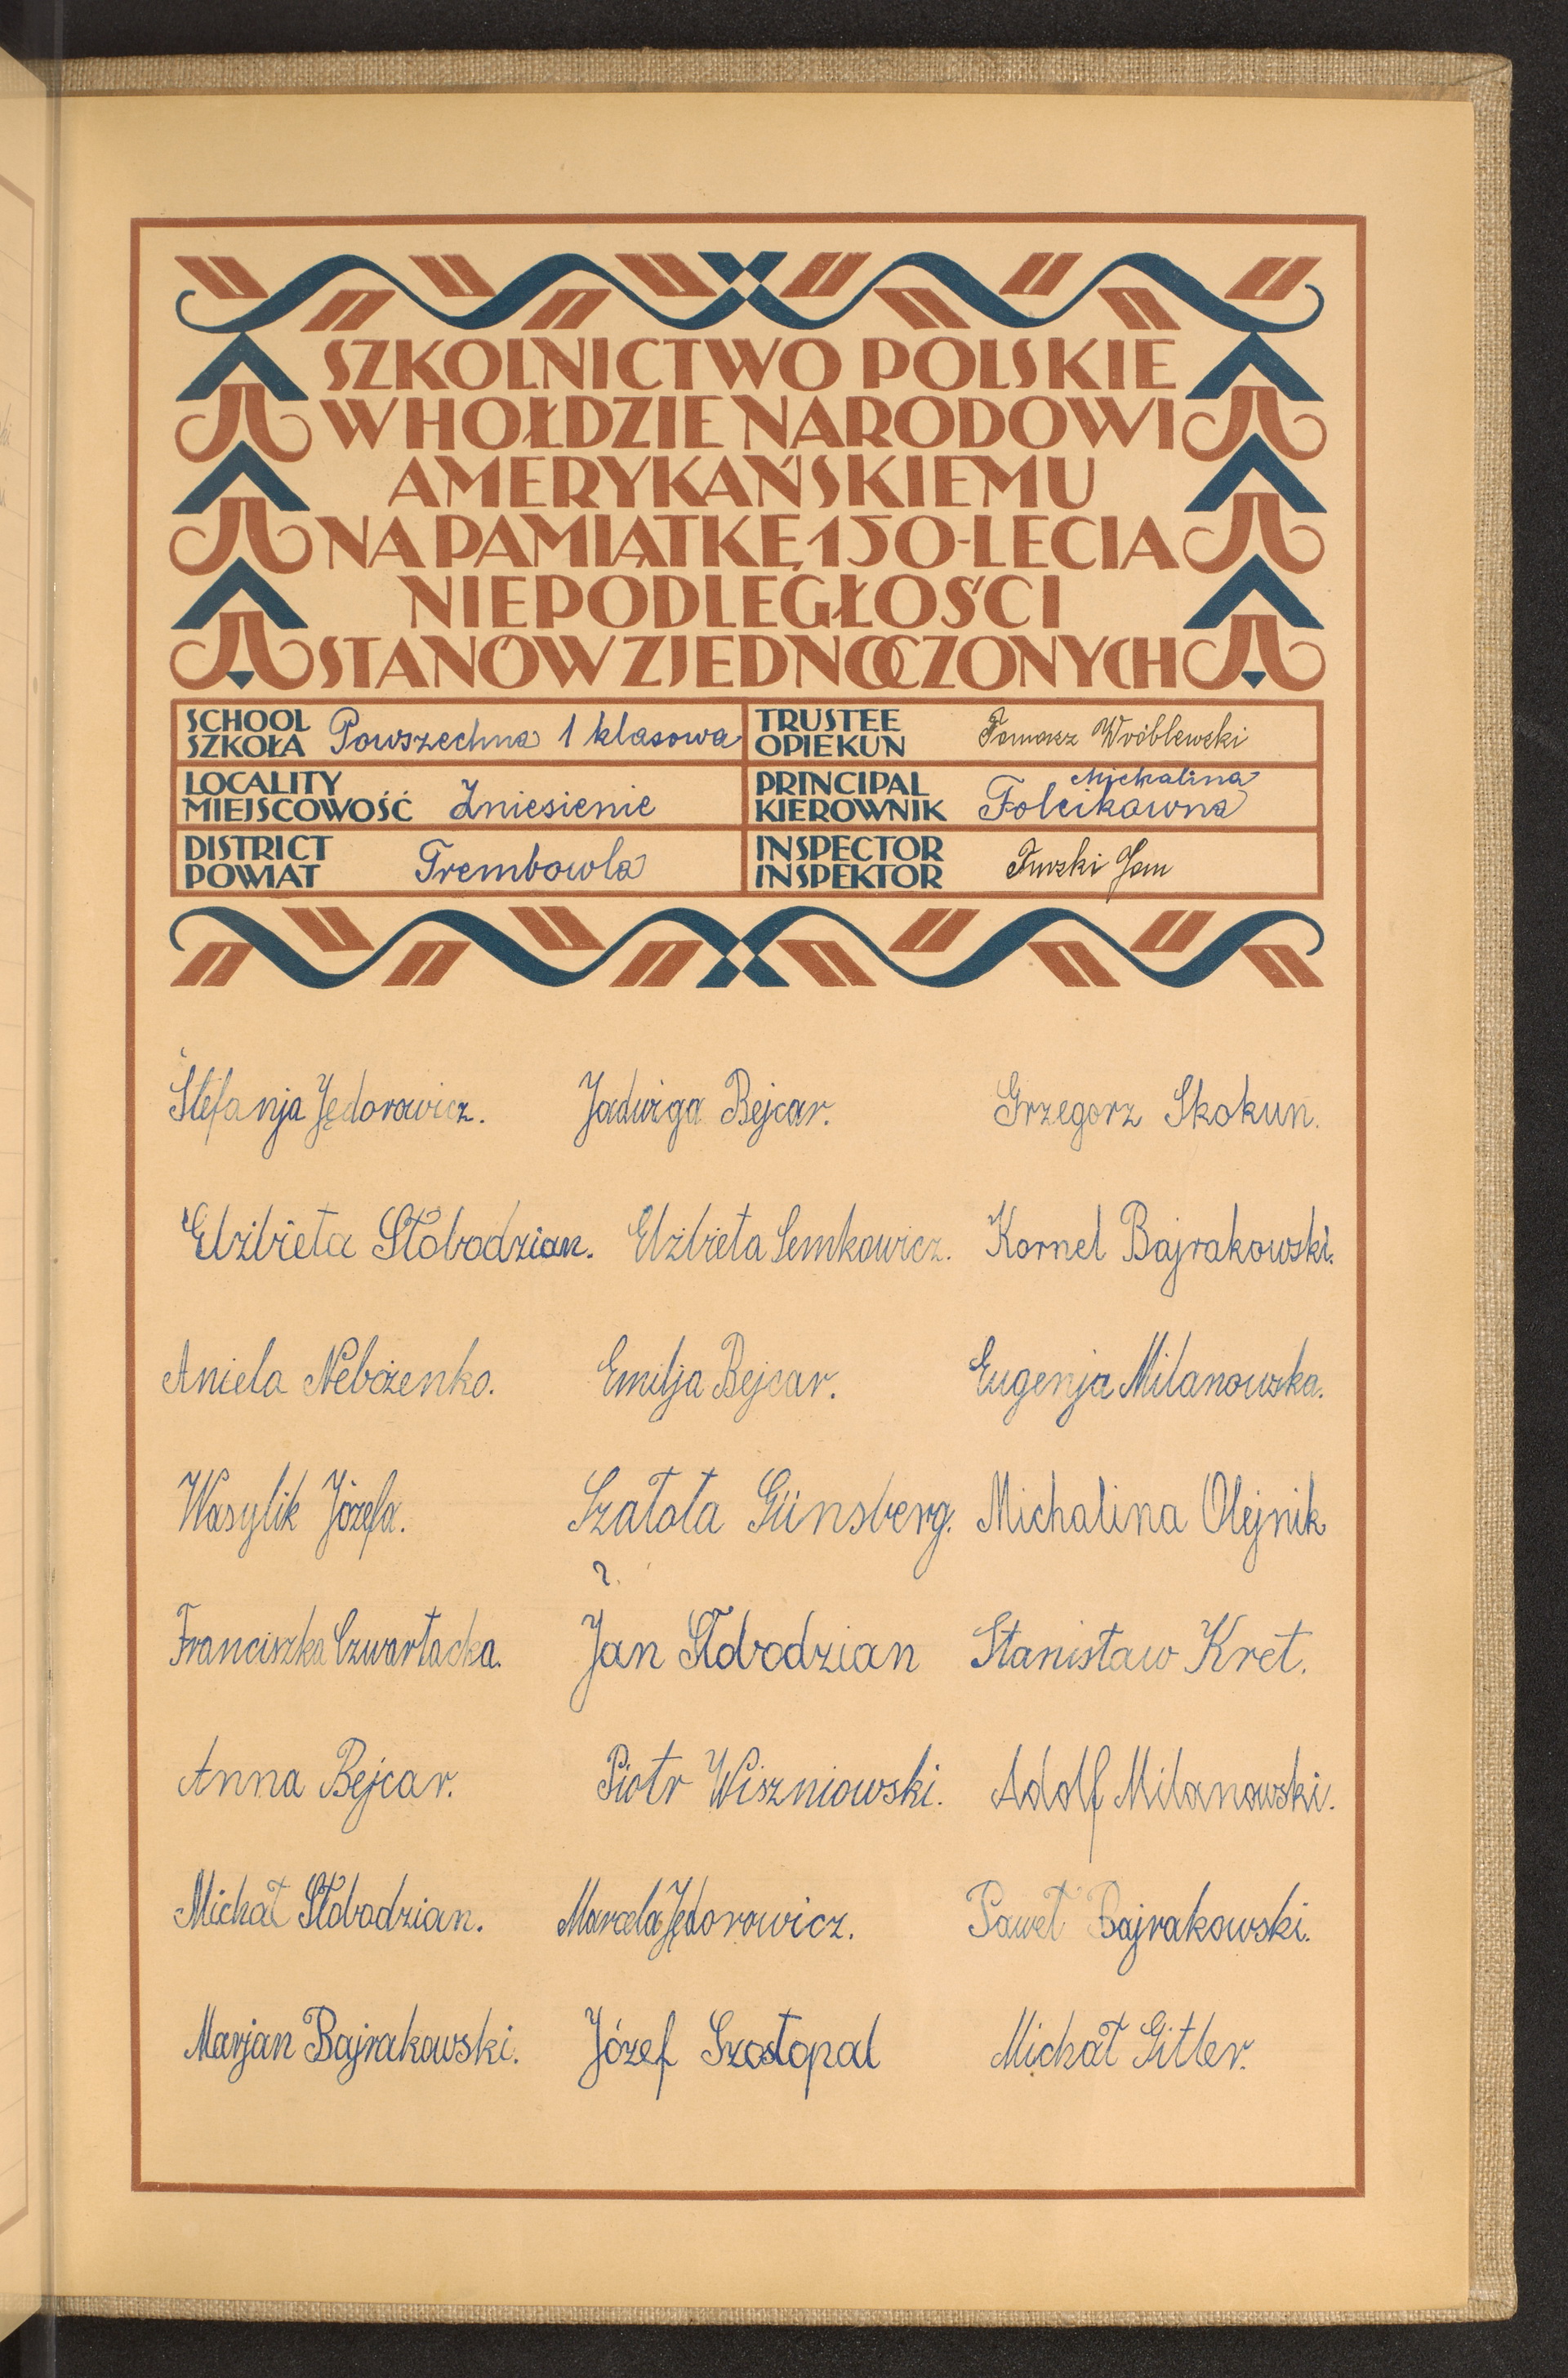 SZKOLNICTWO POLSKIE
W HOŁDZIE NARODOWI
AMERYKAŃSKIEMU
NA PAMIĄTKĘ 150-LECIA
NIEPODLEGŁOŚCI
STANÓW ZJEDNOCZONYCH
SCHOOL
SZKOŁA Powszechna 1 klasowa
TRUSTEE
OPIEKUN Tomasz Wróblewski
LOCALITY
MIEJSCOWOŚĆ Zniesienie
PRINCIPAL Michalina
KIEROWNIK Folcikówna
DISTRICT
POWIAT Trembowla
INSPECTOR
INSPEKTOR Turski Jan
Stefanja Jędorowicz. Jadwiga Bejcar. Grzegorz Skokun.
Elżbieta Słobodzian. Elżbieta Semkowicz. Kornel Bajrakowski.
Aniela Nebożenko. Emilja Bejcar. Eugenja Milanowska.
Wasylik Józefa. Szałota Günsberg. Michalina Olejnik
Franciszka Czwartacka. Jan Słobodzian Stanisław Kret.
Anna Bejcar. Piotr Wiszniowski. Adolf Milanowski.
Michał Słobodzian. Marcela Jędorowicz. Paweł Bajrakowski.
Marjan Bajrakowski. Józef Szostopal Michał Gitler.